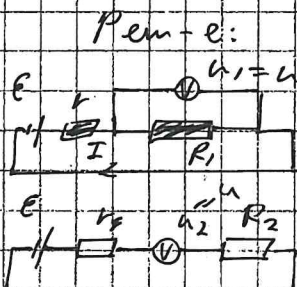 Реш-е:
ε r U₁ = U
I R₁
ε r U₂ = U R₂
V